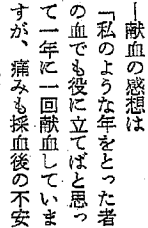 ―献血の感想は
「私のような年をとった者
の血でも役に立てばと思っ
て一年に一回献血していま
すが、痛みも採血後の不安